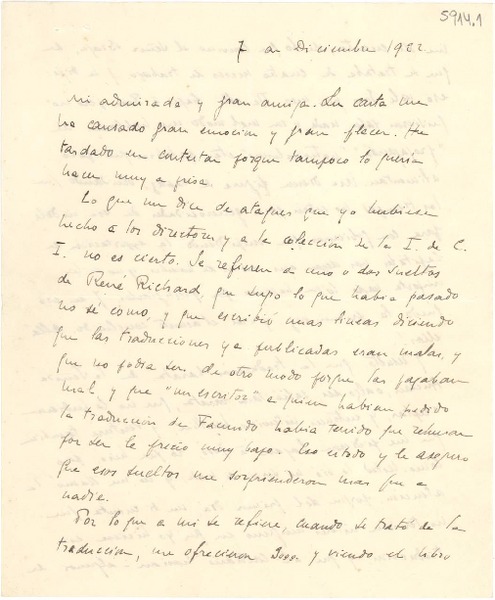 5914.1
7 de Diciembre 1922
Mi admirada y gran amiga. Su carta me
ha causado gran emocion y gran placer. He
tardado en contestar porque tampoco lo queria
hacer muy a prisa.
Lo que me dice de ataques que yo hubiese
hecho a los directores y a la coleccion de la I. de C.
I. no es cierto. Se refieren a uno o dos sueltos
de René Richard, que supo lo que habia pasado
no sé como, y que escribió unas lineas diciendo
que las traducciones ya publicadas eran malas, y
que no podia ser de otro modo porque las pagaban
mal, y que "un escritor" a quien habian pedido
la traduccion de Facundo habia tenido que rehusar
por ser le precio muy bajo. Eso es todo y le aseguro
que esos sueltos me sorprendieron mas que a
nadie.
Por lo que a mi se refiere, cuando se trató de la
traduccion, me ofrecieron 3000 y viendo el libro